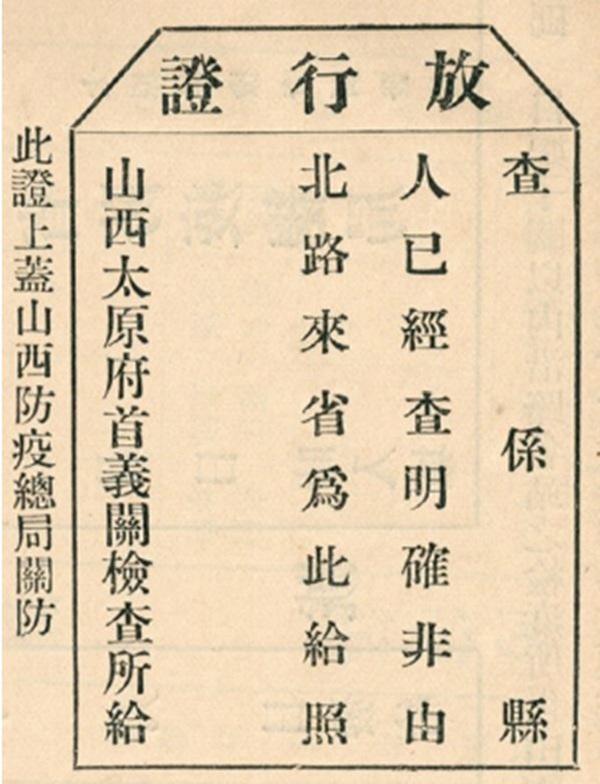 放行證
查係縣
人已經查明確非由
北路來省爲此給照
山西太原府首義關檢查所給
此證上蓋山西防疫總局關防